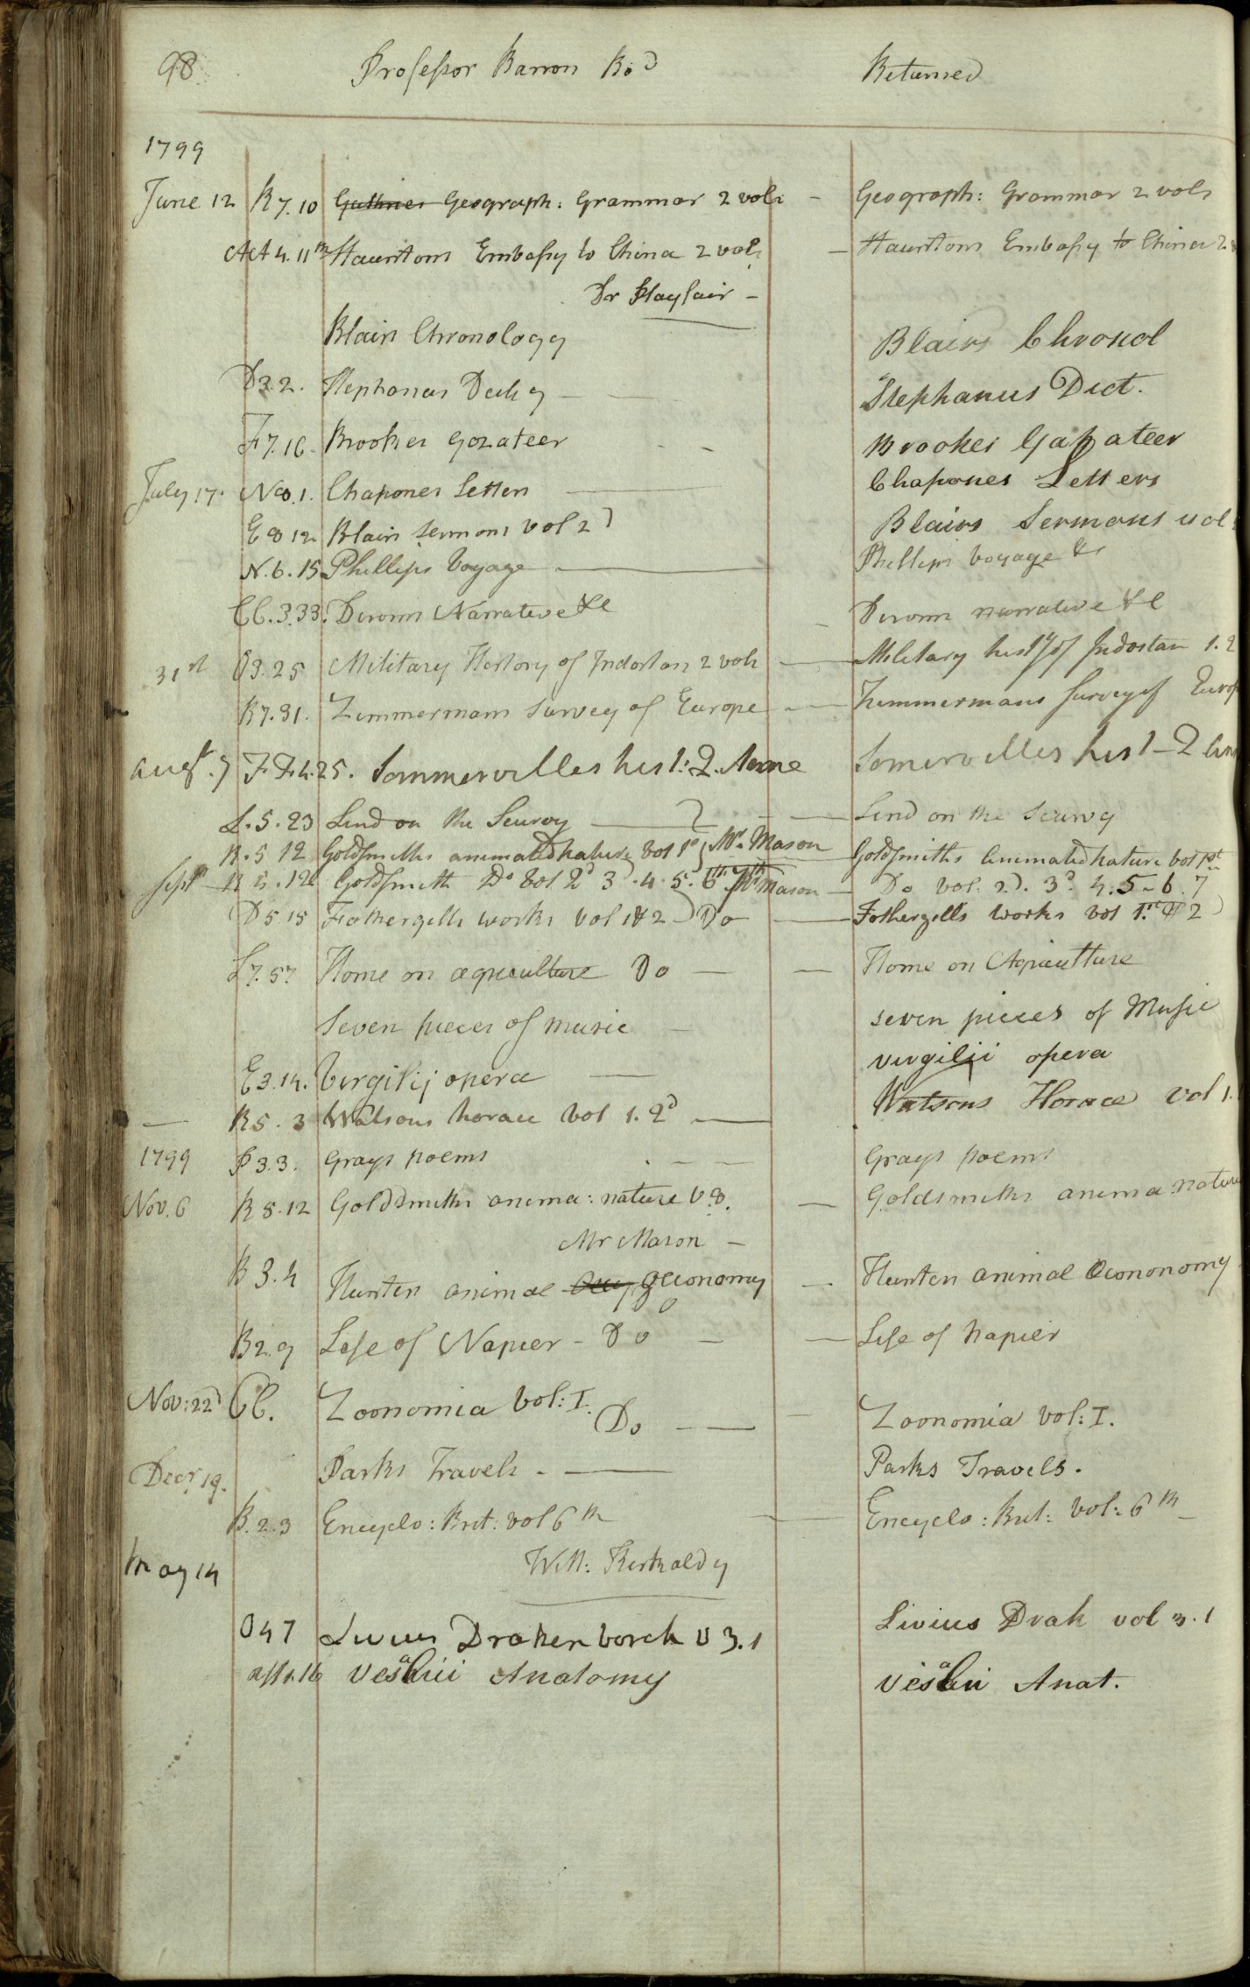 98 Professor Barron Rd Returned
1799
June 12 R7.10 Guthries Geograph: Grammar 2 vols - Geograph: Grammar 2 vols
AA4.11 Stauntons Embassy to China 2 vols - Stauntons Embassy to China 2
Dr Playfair -
Blairs Chronology Blairs Chronol
D3.2. Stephanus Dict Stephanus Dict.
F7.16. Brookes Gazateer - Brookes Gazateer
July 17. N8.1. Chapones Letters Chapones Letters
E8 12 Blairs Sermons Vol 2d Blairs Sermons vol
N.6.15 Phillips Voyage Phillips Voyage &c
CC.3.33. Dirom Narrative &c Dirom narrative &c
31st O3.25 Military History of Indostan 2 vols Military histy of Indostan 1.2
R7.31. Zimmermans Survey of Europe Zimmermans Survey of Europe
Augt. 7 FF4.25. Sommervilles hist: Q. Anne Somervilles hist - Q Ann
L.5.23 Lind on the Scurvy Lind on the Scurvy
R.5 12 Goldsmiths animated nature vol 1st Mr Mason Goldsmiths Animated nature vol 1st
Sept R 5.12 Goldsmith Do vol 2d 3d.4.5.6th.7th Mr Mason - Do vol. 2d. 3d. 4.5-6.7
D5.15 Fothergills works vol 1&2 Do Fothergills works vol 1st & 2d
L7.57 Home on agriculture Do Home on Agriculture
Seven pieces of music seven pieces of Music
E3.14. Virgilij opera Virgilii opera
R5.3 Watsons horace vol 1.2d Watsons Horace vol 1.
1799 P3.3. Grays poems Grays poems
Nov. 6 R5.12 Goldsmiths anima: nature V.8. Goldsmiths anima nature
Mr Mason -
B 3.4 Hunters animal Oeconomy - Hunters animal Oeconomy
B2.9 Life of Napier - Do - Life of Napier
Nov: 22d CC. Zoonomia Vol: I. Do Zoonomia Vol: I.
Decr 19. Parks Travels - Parks Travels.
B.2.3 Encyclo: Brit: vol 6th Encyclo: Brit: vol: 6th
May 14 Will: Kirkaldy
O47 Livius Drakenborch V 3.1 Livius Drak vol 3.1
Vesalii Anatomy Vesalii Anat.